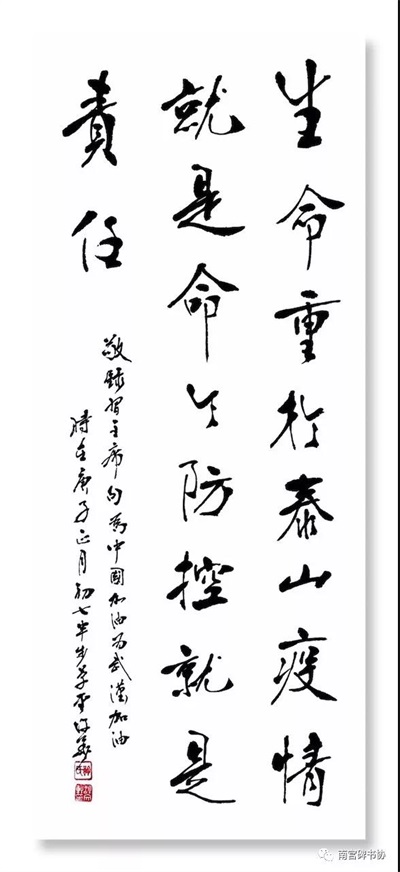 生命重於泰山疫情
就是命令防控就是
責任
敬錄習主席句為中國加油为武漢加油
時在庚子正月初七半步
南宫碑书协